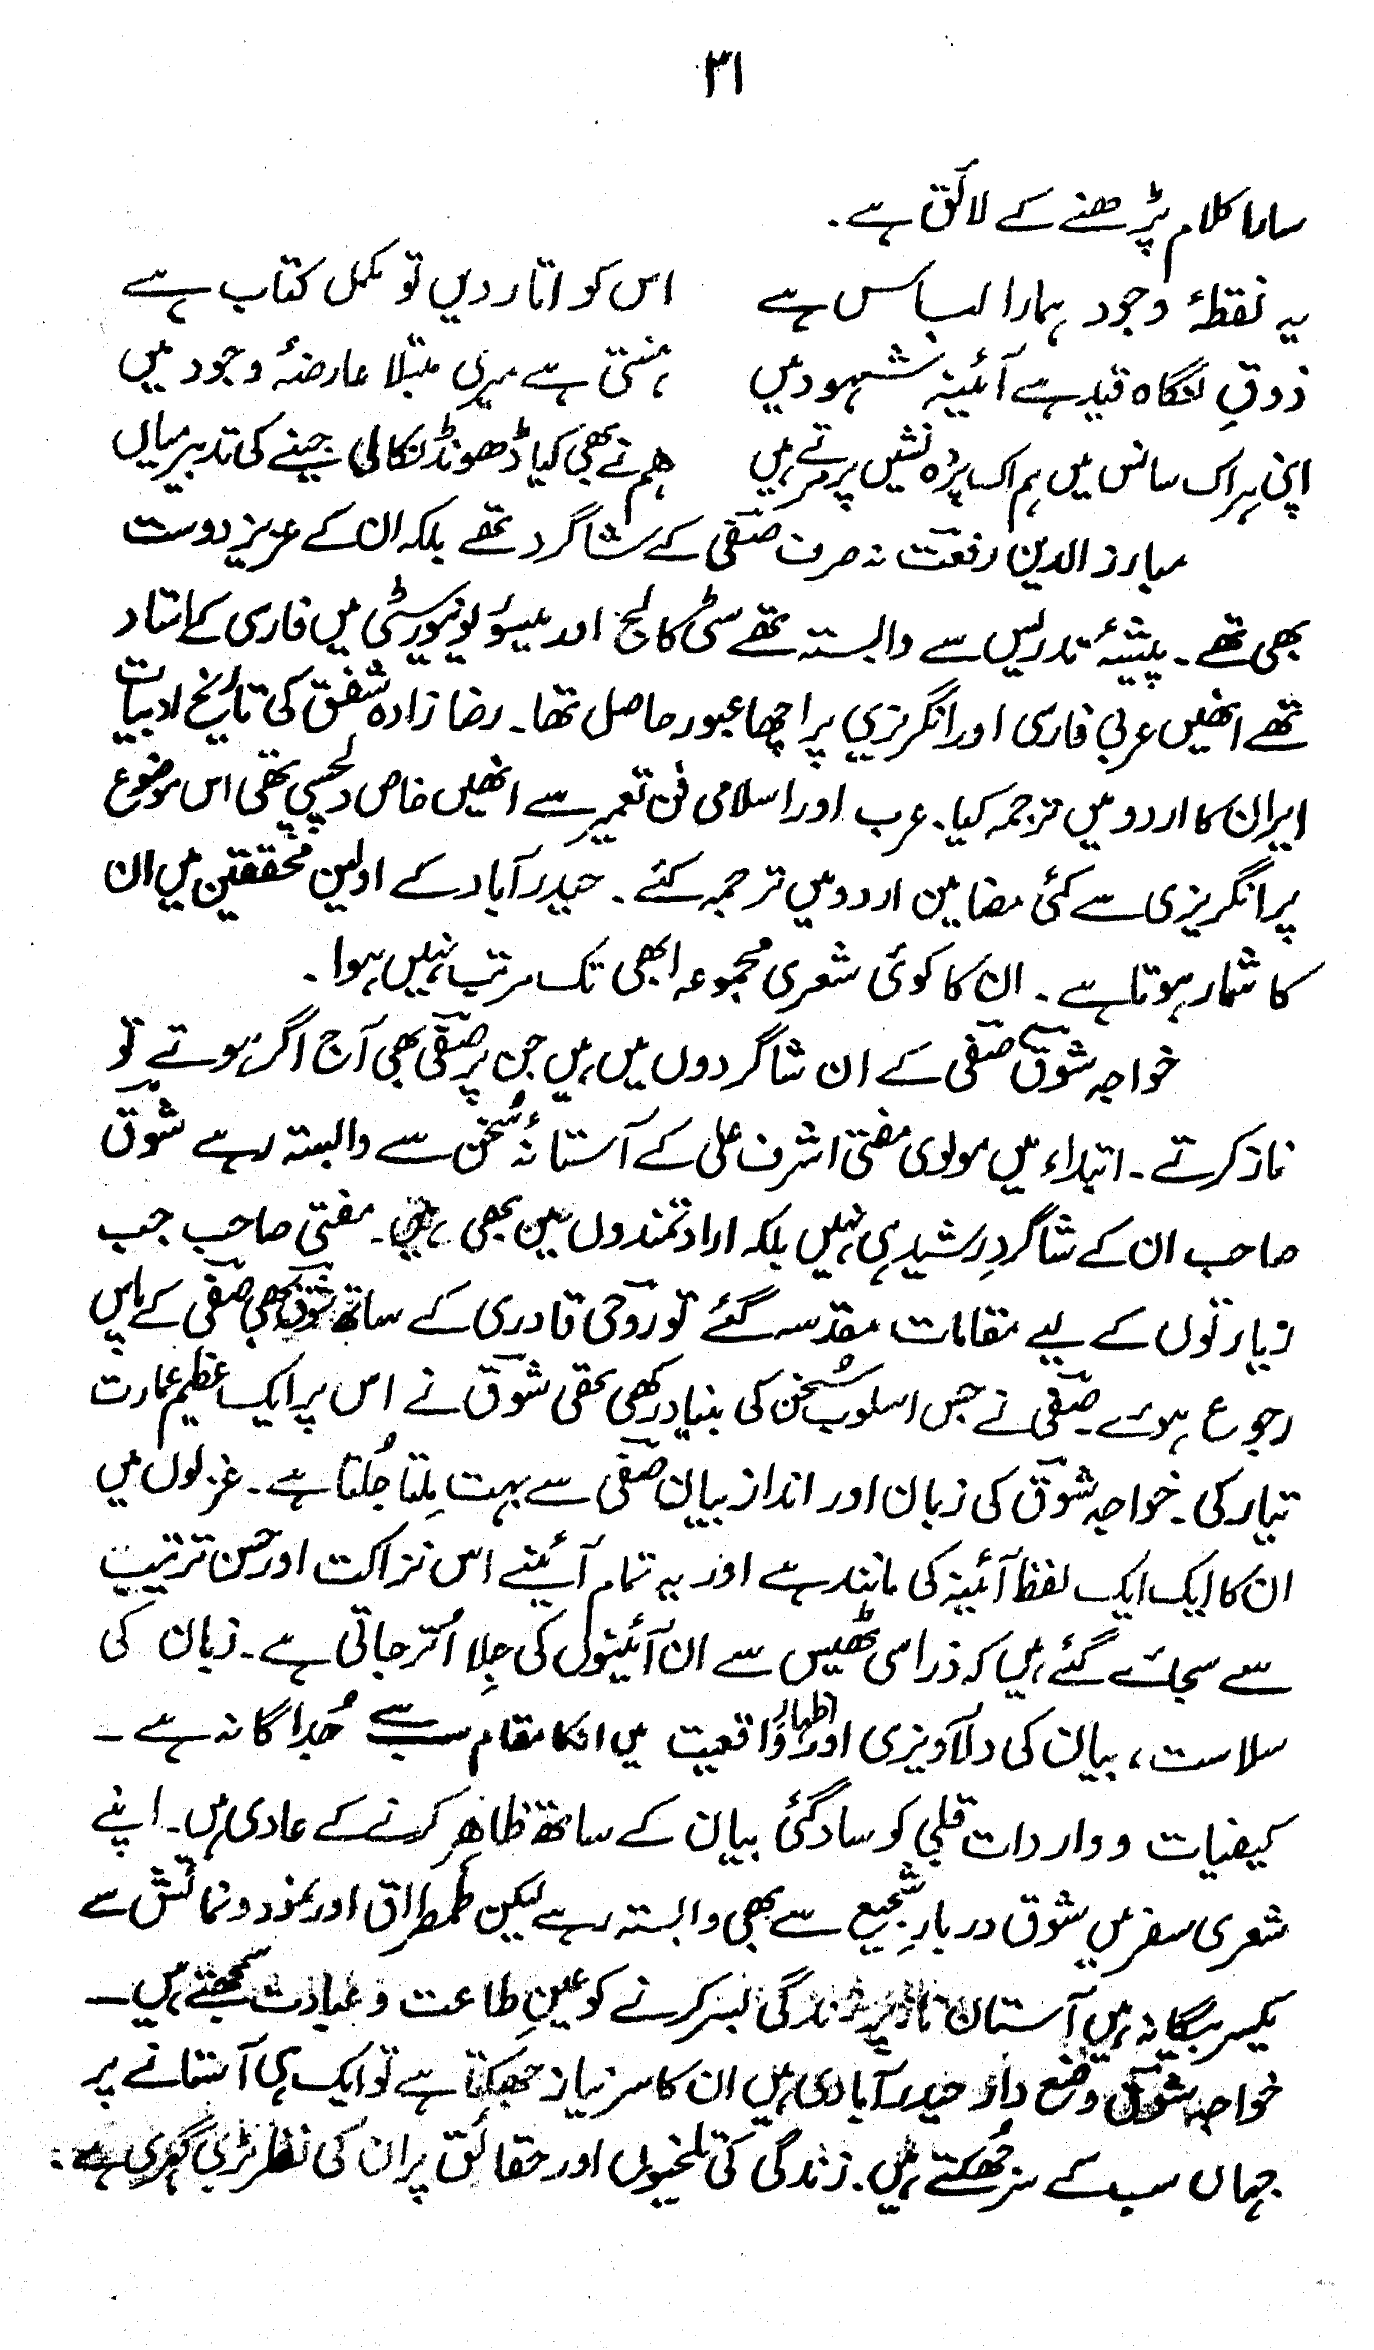 ۳۱
سارا کلام پڑھنے کے لائق ہے۔
یہ نقطۂ وجود ہمارا لباس ہے اس کو اتار دیں تو مکمل کتاب ہے
ذوقِ نگاہ قید ہے آئینہ شہود میں ہستی ہے میری مبتلا عارضۂ وجود میں
اپنی ہر اک سانس میں ہم اک پردہ نشیں پر مرتے ہیں ہم نے بھی کیا ڈھونڈ نکالی جینے کی تدبیر میاں
مبارز الدین رفعت نہ صرف صفی کے شاگرد تھے بلکہ ان کے عزیز دوست
بھی تھے۔ پیشۂ تدریس سے وابستہ تھے سٹی کالج اور میسور یونیورسٹی میں فارسی کے استاد
تھے انھیں عربی فارسی اور انگریزی پر اچھا عبور حاصل تھا۔ رضا زادہ شفق کی تاریخ ادبیات
ایران کا اردو میں ترجمہ کیا۔ عرب اور اسلامی فن تعمیر سے انھیں خاص دلچسپی تھی اس موضوع
پر انگریزی سے کئی مضامین اردو میں ترجمہ کئے۔ حیدرآباد کے اولین محققین میں ان
کا شمار ہوتا ہے۔ ان کا کوئی شعری مجموعہ ابھی تک مرتب نہیں ہوا۔
خواجہ شوق صفی کے ان شاگردوں میں ہیں جن پر صفی بھی آج اگر ہوتے تو
ناز کرتے۔ ابتداء میں مولوی مفتی اشرف علی کے آستانۂ سُخن سے وابستہ رہے شوق
صاحب ان کے شاگردِ رشید ہی نہیں بلکہ ارادتمندوں میں بھی ہیں۔ مفتی صاحب جب
زیارتوں کے لیے مقامات مقدسہ گئے تو روحی قادری کے ساتھ شوق بھی صفی کے پاس
رجوع ہوئے۔ صفی نے جس اسلوب سُخن کی بنیاد رکھی تھی شوق نے اس پر ایک عظیم عمارت
تیار کی۔ خواجہ شوق کی زبان اور انداز بیان صفی سے بہت مِلتا جُلتا ہے۔ غزلوں میں
ان کا ایک ایک لفظ آئینہ کی مانند ہے اور یہ تمام آئینے اس نزاکت اور حسن ترتیب
سے سجائے گئے ہیں کہ ذرا سی ٹھیس سے ان آئینوں کی جِلا اُتر جاتی ہے۔ زبان کی
سلاست، بیان کی دلآویزی اور اظہار واقعیت میں انکا مقام سب سے جُداگانہ ہے ۔
کیفیات و واردات قلبی کو سادگئ بیان کے ساتھ ظاہر کرنے کے عادی ہیں۔ اپنے
شعری سفر میں شوق دربارِ شجیع سے بھی وابستہ رہے لیکن طمطراق اور نمود و نمائش سے
یکسر بیگانہ ہیں آستان ناز پر زندگی بسر کرنے کو عینِ طاعت و عبادت سمجھتے ہیں ۔
خواجہ شوق وضع دار حیدرآبادی ہیں ان کا سرنیاز جھکتا ہے تو ایک ہی آستانے پر
جہاں سب کے سر جُھکتے ہیں۔ زندگی کی تلخیوں اور حقائق پر ان کی نظر بڑی گہری ہے۔